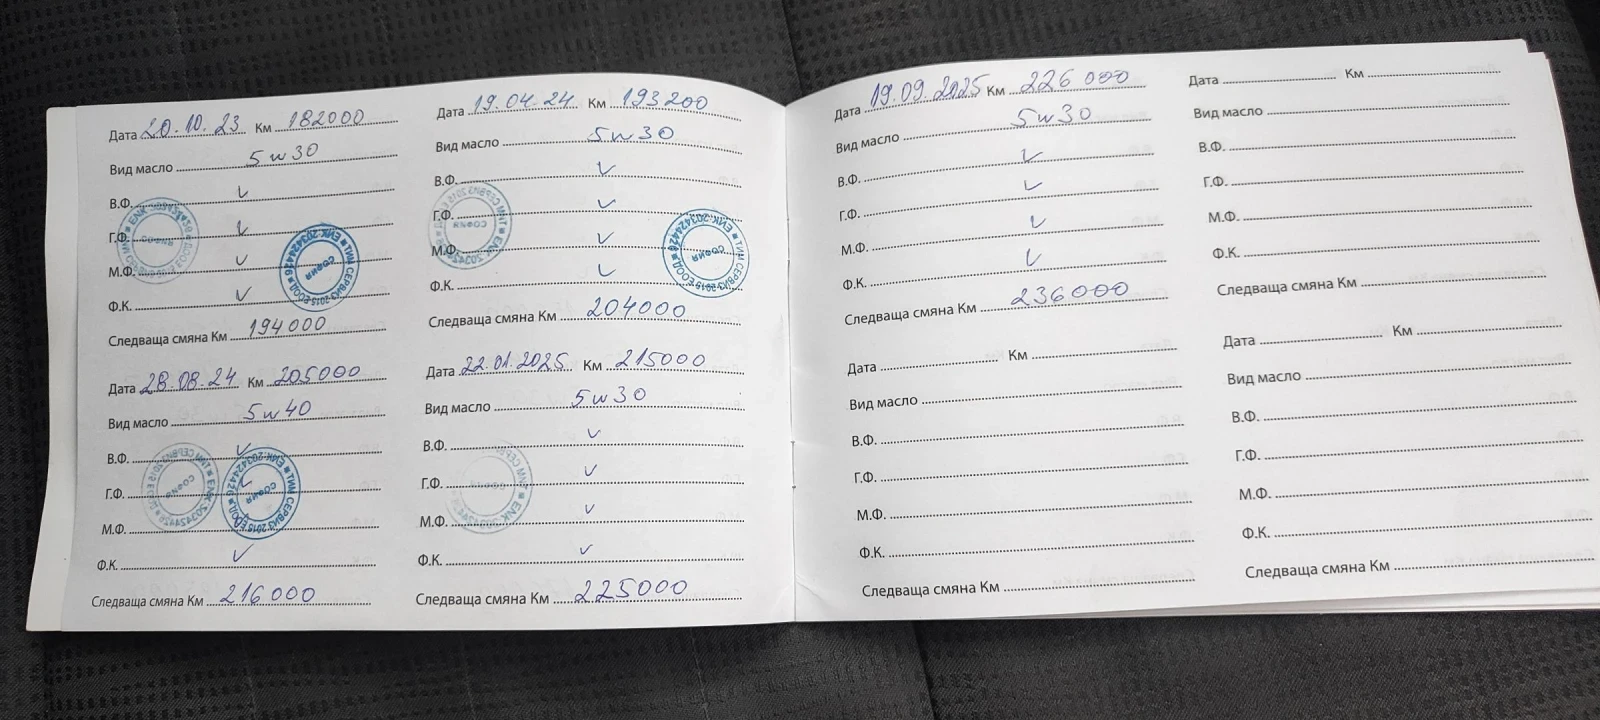 Дата 20.10.23 Км 182000
Вид масло 5w30
В.Ф. ✓
Г.Ф. ✓
М.Ф. ✓
Ф.К. ✓
Следваща смяна Км 194000
Дата 28.08.24 Км 205000
Вид масло 5w40
В.Ф. ✓
Г.Ф. ✓
М.Ф. ✓
Ф.К. ✓
Следваща смяна Км 216000
Дата 19.04.24. Км 193200
Вид масло 5w30
В.Ф. ✓
Г.Ф. ✓
М.Ф. ✓
Ф.К. ✓
Следваща смяна Км 204000
Дата 22.01.2025 Км 215000
Вид масло 5w30
В.Ф. ✓
Г.Ф. ✓
М.Ф. ✓
Ф.К. ✓
Следваща смяна Км 225000
ТИМ СЕРВИЗ 2015 ЕООД ЕИК:203424426
СОФИЯ
Дата 19.09.2025 Км 226000
Вид масло 5w30
В.Ф. ✓
Г.Ф. ✓
М.Ф. ✓
Ф.К. ✓
Следваща смяна Км 236000
Дата Км
Вид масло
В.Ф.
Г.Ф.
М.Ф.
Ф.К.
Следваща смяна Км
Дата Км
Вид масло
В.Ф.
Г.Ф.
М.Ф.
Ф.К.
Следваща смяна Км
Дата Км
Вид масло
В.Ф.
Г.Ф.
М.Ф.
Ф.К.
Следваща смяна Км